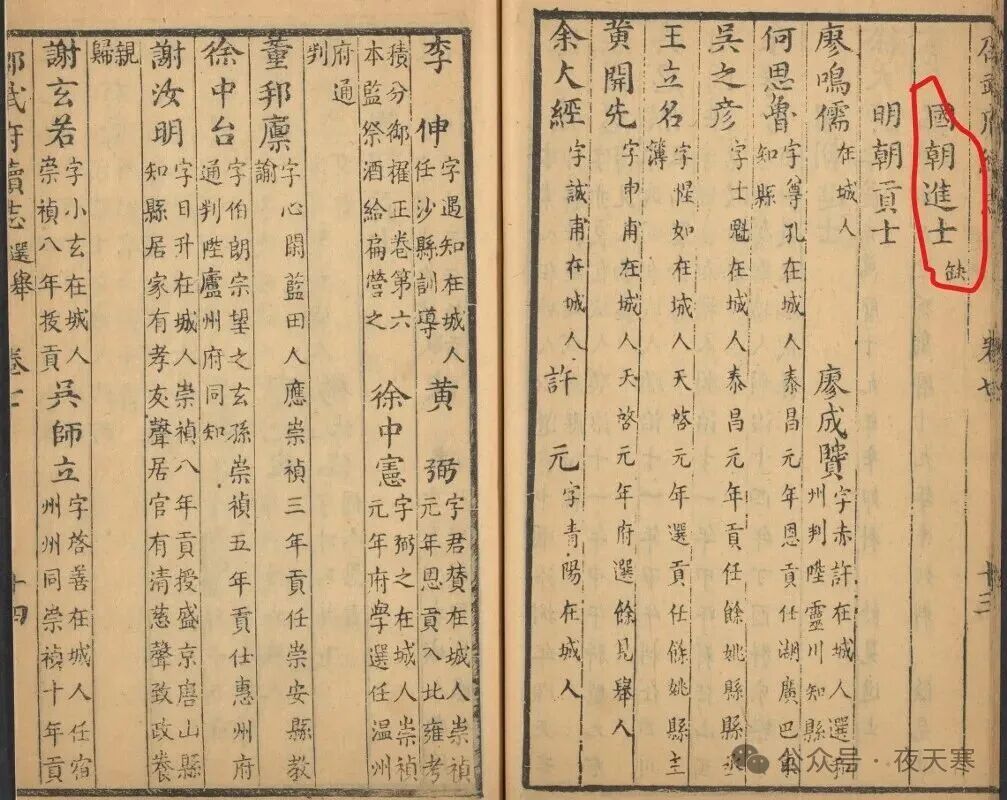 國朝進士 缺
明朝貢士
廖鳴儒 在城人 廖成贊 字赤許在城人選
州判陞靈川知縣
何思魯 字尊孔在城人泰昌元年恩貢任湖廣巴
知縣
吳之彦 字士魁在城人泰昌元年貢任餘姚縣
王立名 字惺如在城人天啓元年選貢任餘姚縣主
薄
黄開先 字中甫在城人天啓元年府選餘見舉人
余大經 字誠甫在城人 許元 字青陽在城人
卷七
十三
李伸 字遇知在城人 黄弼 字君賛在城人崇禎
任沙縣訓導 元年恩貢入北雍考
積分御擢正卷第六 徐中憲 字弼之在城人崇禎
本監祭酒給扁營之 元年府學選任温州
府通
判
董邦廪 字心閑藍田人應崇禎三年貢任崇安縣教
諭
徐中台 字伯朗宗望之玄孫崇禎五年貢仕惠州府
通判陞廬州府同知
謝汝明 字日升在城人崇禎八年貢授盛京唐山縣
知縣居家有孝友聲居官有清慈聲致政養
親
歸
謝玄若 字小玄在城人 吳師立 字啓善在城人任宿
崇禎八年拔貢 州州同崇禎十年貢
邵武府續志 選舉 卷七 十四
公众号·夜天寒